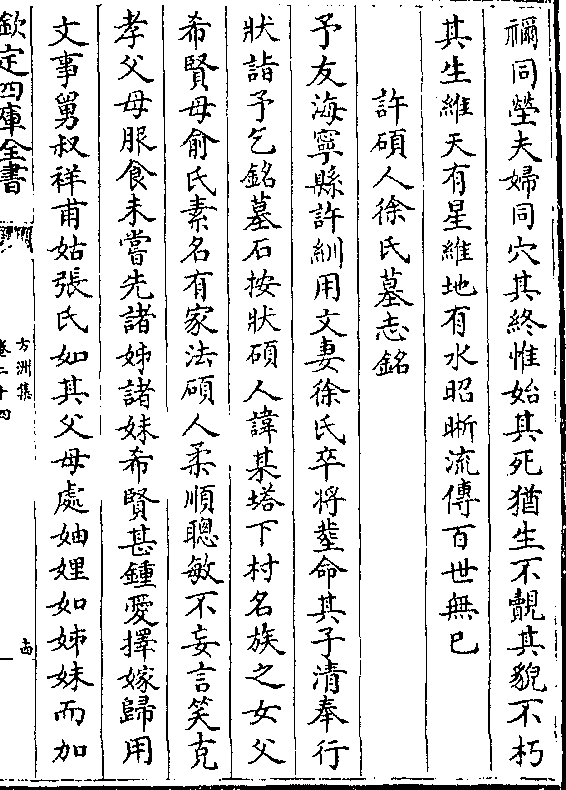 禰同塋夫婦同穴其終惟始其死猶生不覿其貌不朽
其生維天有星維地有水昭晰流傳百世無已
許碩人徐氏墓志銘
予友海寧縣許紃用文妻徐氏卒將塟命其子清奉行
狀詣予乞銘墓石按狀碩人諱某塔下村名族之女父
希賢母俞氏素名有家法碩人柔順聰敏不妄言笑克
孝父母服食未嘗先諸姊諸妹希賢甚鍾愛擇嫁歸用
文事舅叔祥甫姑張氏如其父母處妯娌如姊妹而加
欽定四庫全書
方洲集
卷二十四